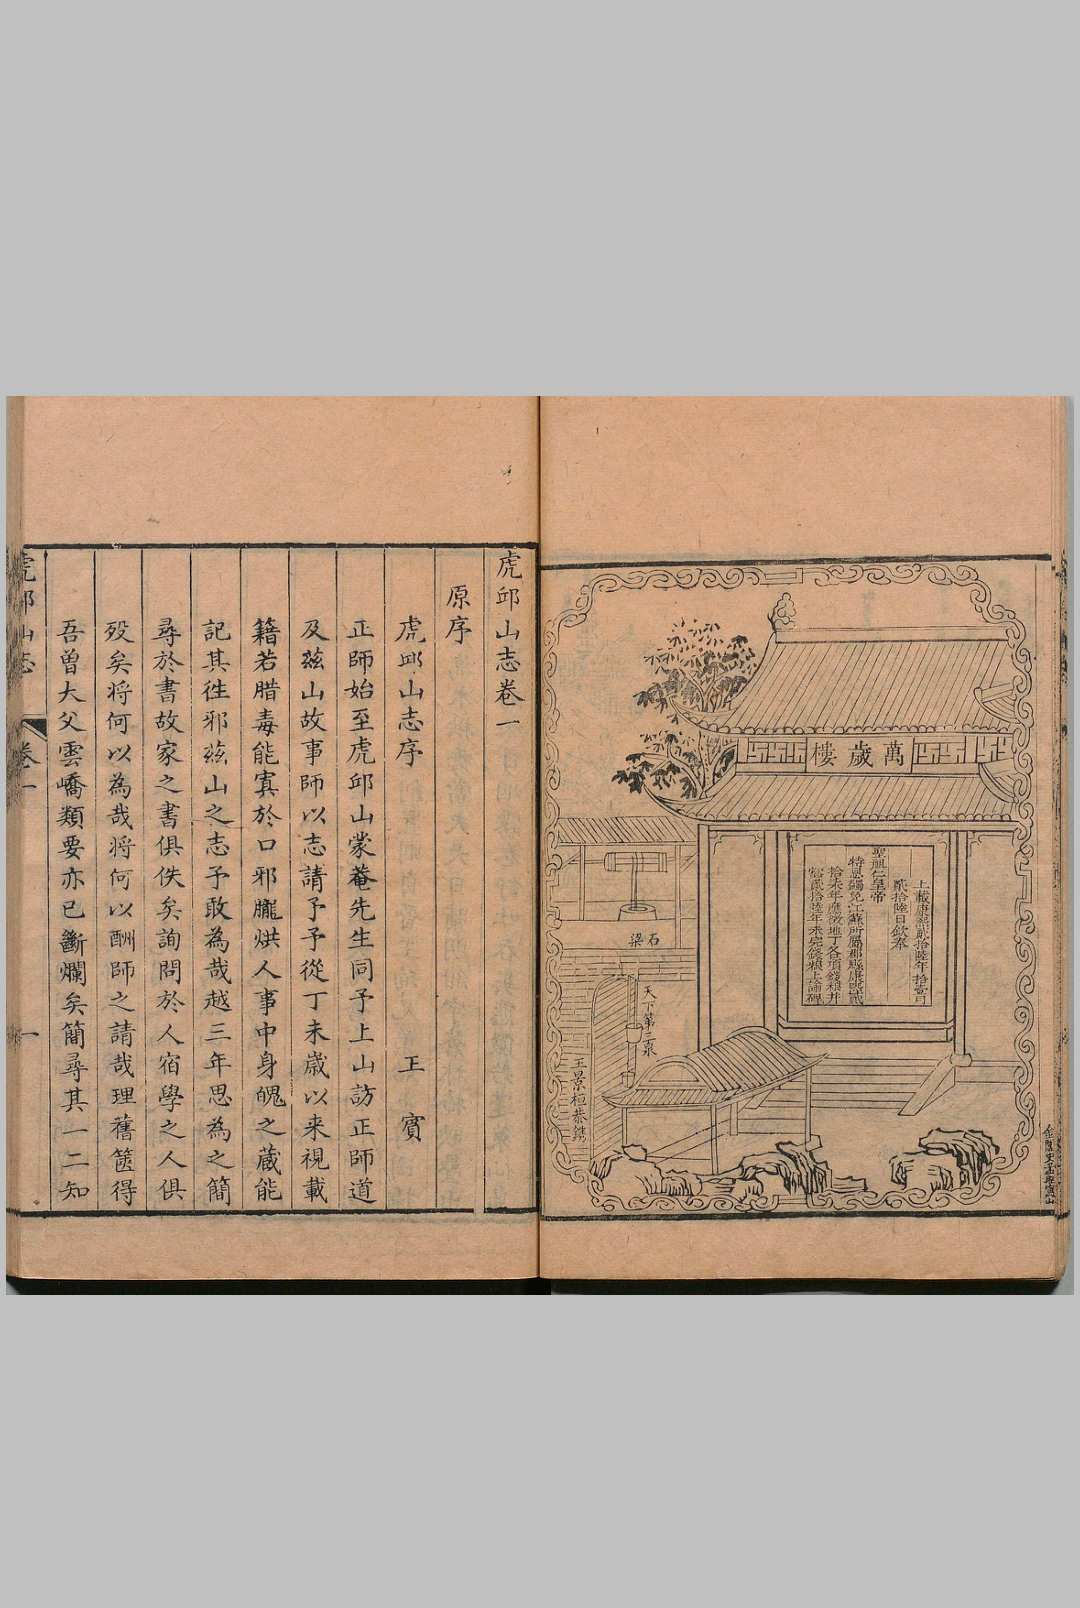 樓歲萬
上載康熙貳拾陸年拾壹月
貳拾陸日欽奉
聖祖仁皇帝
特恩蠲免江蘇所屬郡縣康熙貳
拾柒年應徵地丁各項錢糧并
貳拾陸年未完錢糧上諭碑
梁石
天下第三泉
王景桓恭鐫
虎邱山志卷一
原序
虎邱山志序
王賓
正師始至虎邱山蒙菴先生同予上山訪正師道
及茲山故事師以志請予予從丁未歲以来視載
籍若腊毒能寘於口邪朧烘人事中身媿之蔵能
記其徃邪茲山之志予敢為哉越三年思為之簡
尋於書故家之書俱佚矣詢問於人宿學之人俱
殁矣将何以為哉将何以酬師之請哉理舊篋得
吾曾大父雲嶠類要亦已斷爛矣簡尋其一二知
虎邱山志
卷一
一